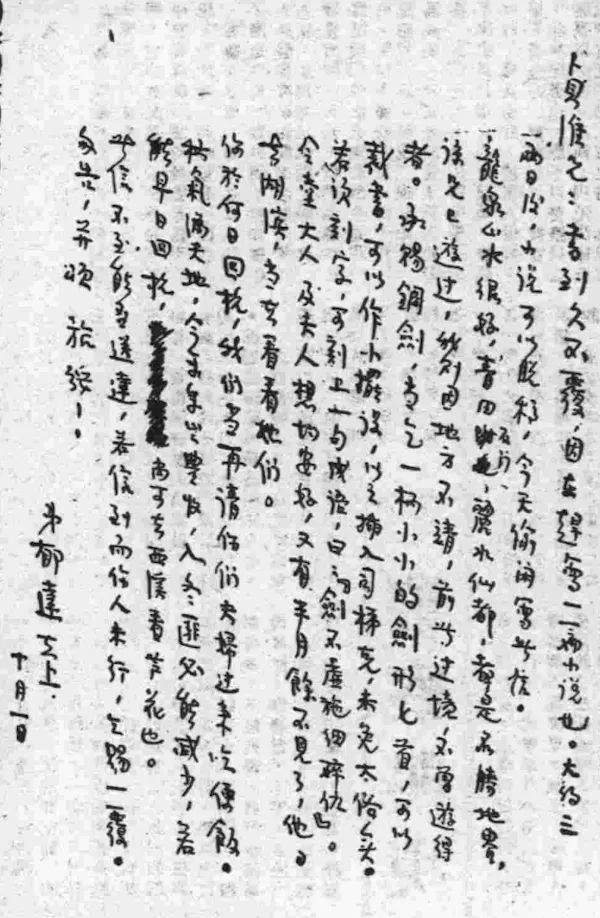 貞惟兄：書到久不覆，因在趕寫一篇小說也。大約三
兩日後，小說可以脫稿，今天偷閑寫此信。
龍泉山水很好，青田石门，麗水仙都，都是名勝地界，
該兄已遊過，我則因地方不靖，前此过境，不曾遊得
者。承賜銅劍，當乞一柄小小的劍形匕首，可以
裁書，可以作小擺設，以之插入司梯克，未免太俗矣。
若说刻字，可刻上一句成语，曰『劍不虛施細碎仇』。
令堂大人及夫人想均安好，又有半月餘不見了，他日
去湖濱，當去看看她们。
你於何日回杭，我们當再請你们夫婦过来吃便飯。
秋氣滿天地，今年年豐收，入冬匪必能減少，若
能早日回杭，尚可去西溪看芦花也。
此信不知能否送達，若信到而你人未行，乞賜一覆。
匆告，并頌 旅綏！
弟郁達夫上
十月一日